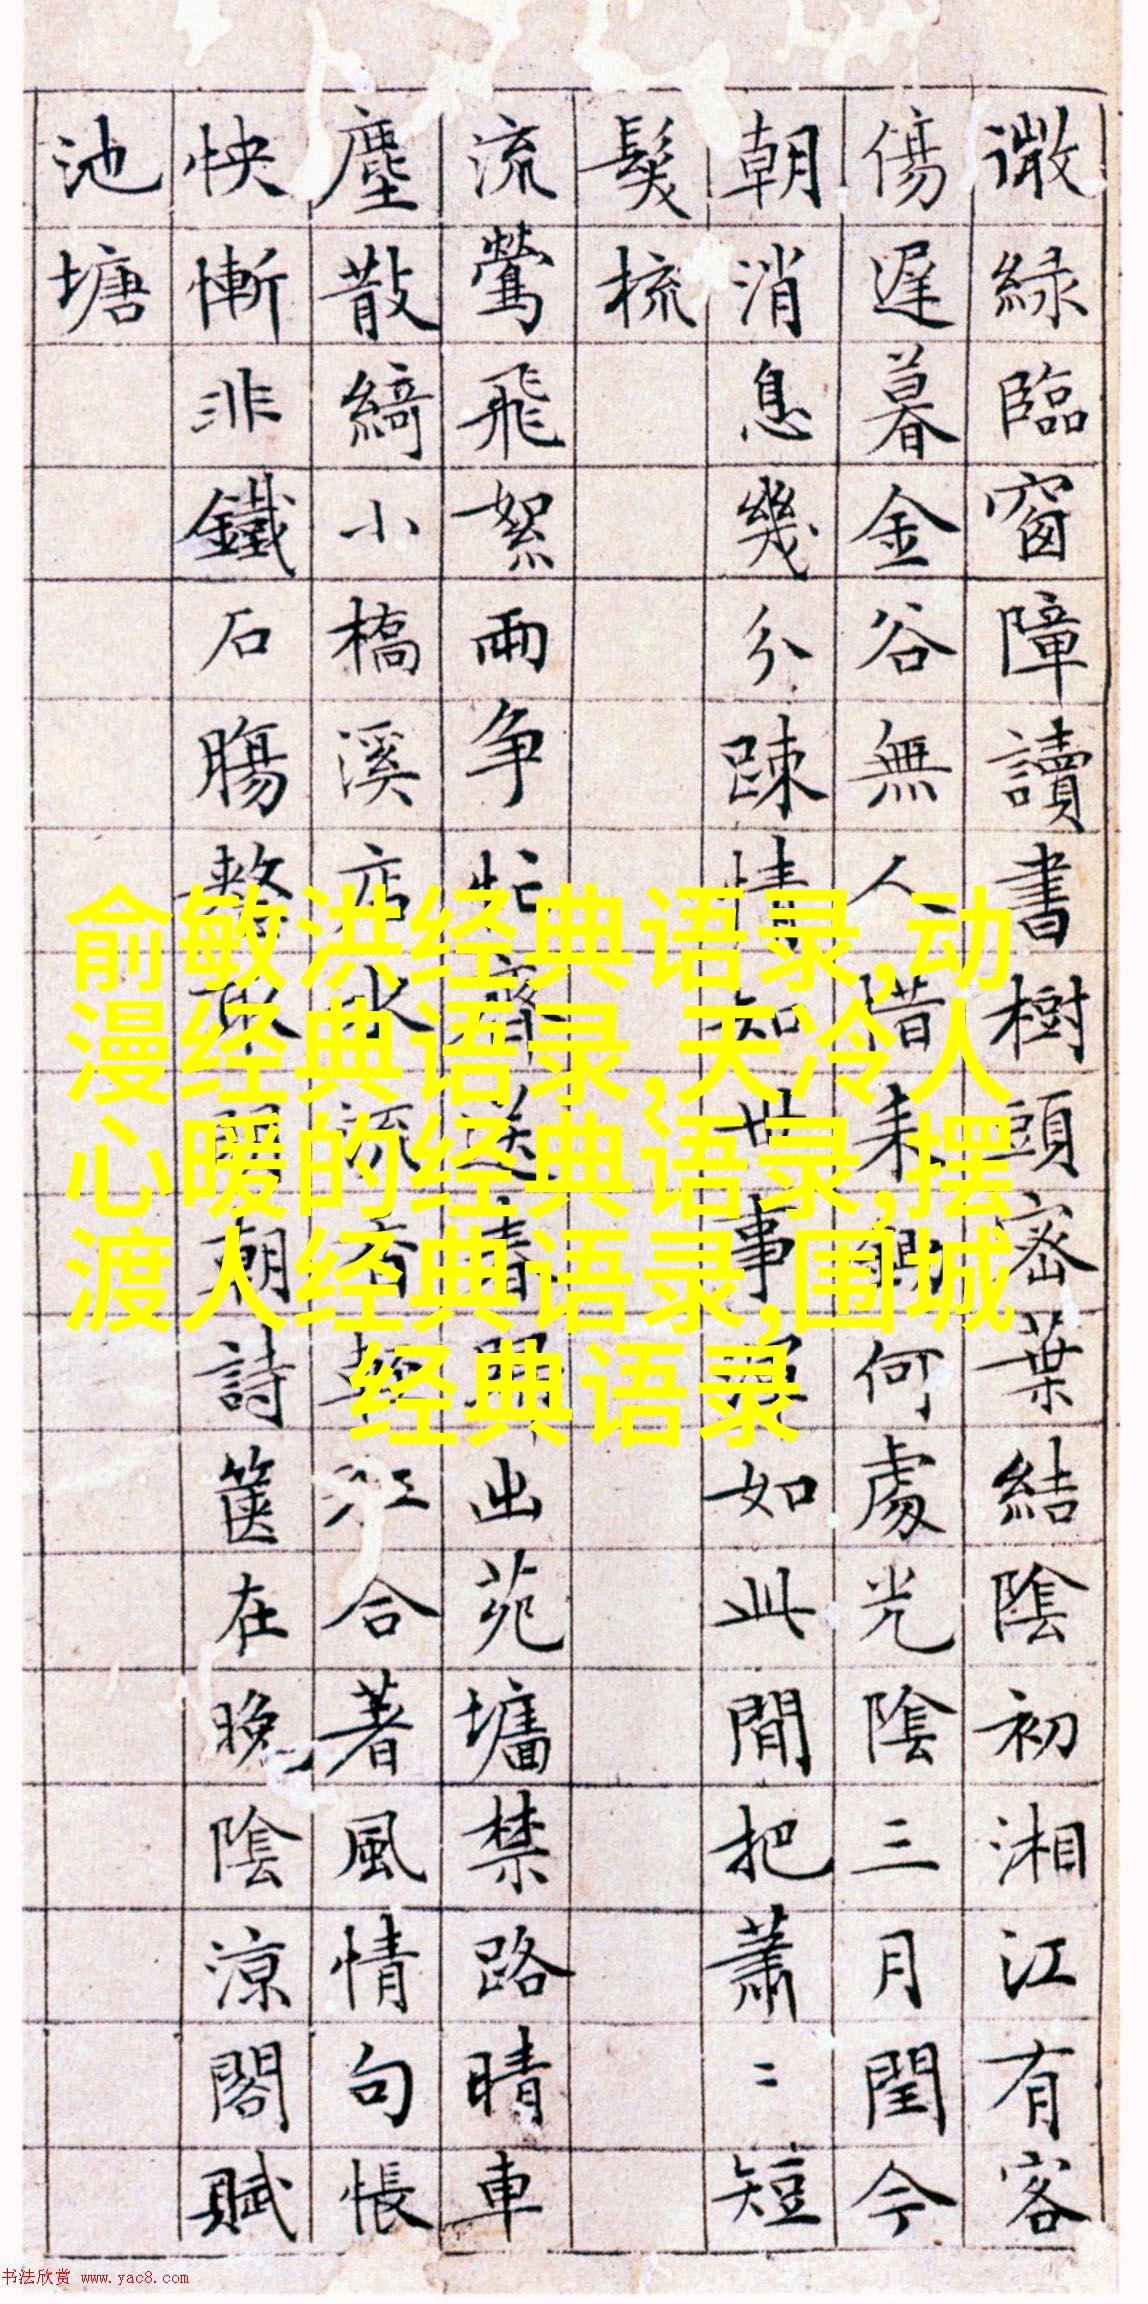 微綠臨窗障讀書樹頭密葉結陰初湘江有客
傷遲暮金谷無人惜何處光陰三月閏今
朝消息幾分疎情知世事如此間把蕭〻短
髮梳
流鶯飛絮兩争忙齊送春明出苑墻禁路晴車
塵散綺小橋溪店水流香江合著風情句悵
怏慚非鐵石腸朝詩篋在晚陰涼閣賦
池塘
俞敏洪经典语录,动
漫经典语录,天冷人
心暖的经典语录,摆
渡人经典语录,围城
经典语录
书法欣赏 www.yac8.com